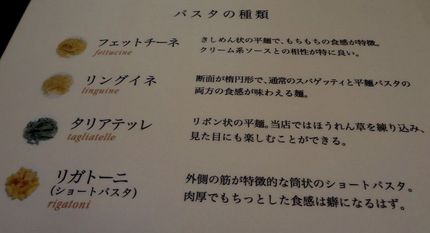 パスタの種類
フェットチーネ
fettucine
きしめん状の平麺で、もちもちの食感が特徴。
クリーム系ソースとの相性が特に良い。
リングイネ
linguine
断面が楕円形で、通常のスパゲッティと平麺パスタの
両方の食感が味わえる麺。
タリアテッレ
tagliatelle
リボン状の平麺。当店ではほうれん草を練り込み、
見た目にも楽しむことができる。
リガトーニ
(ショートパスタ)
rigatoni
外側の筋が特徴的な筒状のショートパスタ。
肉厚でもちっとした食感は癖になるはず。